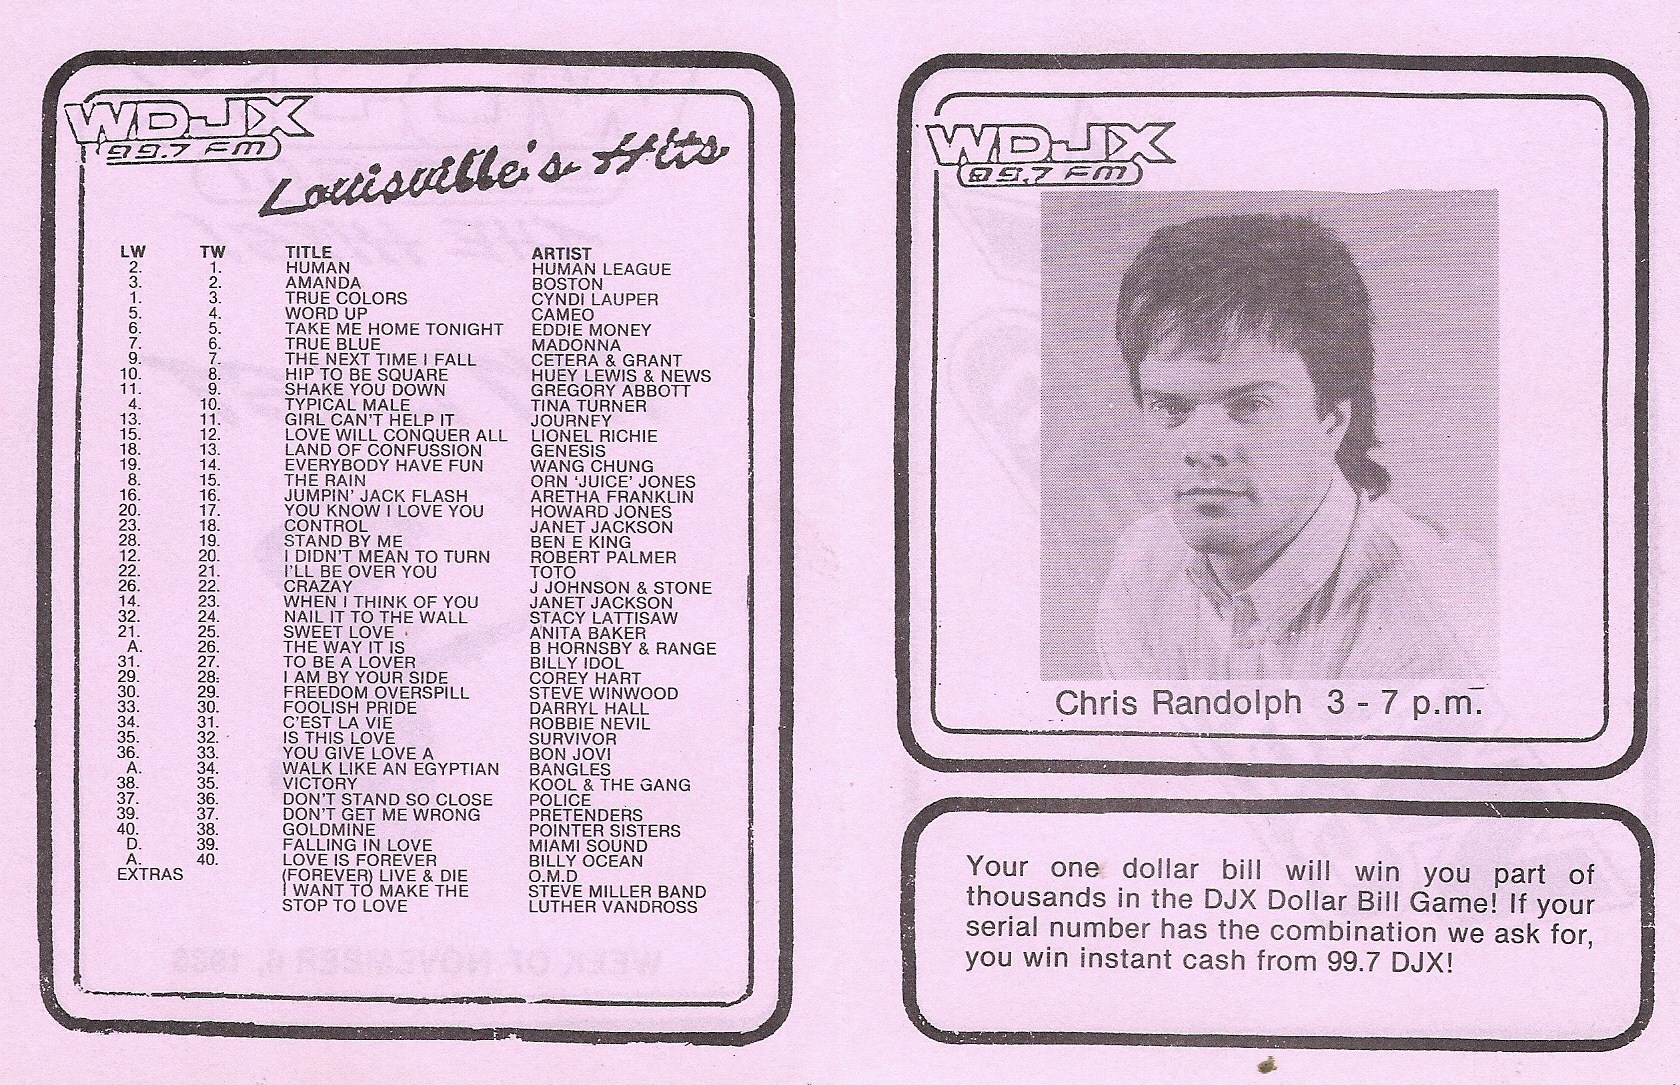 WDJX
99.7 FM
Louisville's Hits
LW TW TITLE ARTIST
2. 1. HUMAN HUMAN LEAGUE
3. 2. AMANDA BOSTON
1. 3. TRUE COLORS CYNDI LAUPER
5. 4. WORD UP CAMEO
6. 5. TAKE ME HOME TONIGHT EDDIE MONEY
7. 6. TRUE BLUE MADONNA
9. 7. THE NEXT TIME I FALL CETERA & GRANT
10. 8. HIP TO BE SQUARE HUEY LEWIS & NEWS
11. 9. SHAKE YOU DOWN GREGORY ABBOTT
4. 10. TYPICAL MALE TINA TURNER
13. 11. GIRL CAN'T HELP IT JOURNEY
15. 12. LOVE WILL CONQUER ALL LIONEL RICHIE
18. 13. LAND OF CONFUSSION GENESIS
19. 14. EVERYBODY HAVE FUN WANG CHUNG
8. 15. THE RAIN ORN 'JUICE' JONES
16. 16. JUMPIN' JACK FLASH ARETHA FRANKLIN
20. 17. YOU KNOW I LOVE YOU HOWARD JONES
23. 18. CONTROL JANET JACKSON
28. 19. STAND BY ME BEN E KING
12. 20. I DIDN'T MEAN TO TURN ROBERT PALMER
22. 21. I'LL BE OVER YOU TOTO
26. 22. CRAZAY J JOHNSON & STONE
14. 23. WHEN I THINK OF YOU JANET JACKSON
32. 24. NAIL IT TO THE WALL STACY LATTISAW
21. 25. SWEET LOVE ANITA BAKER
A. 26. THE WAY IT IS B HORNSBY & RANGE
31. 27. TO BE A LOVER BILLY IDOL
29. 28. I AM BY YOUR SIDE COREY HART
30. 29. FREEDOM OVERSPILL STEVE WINWOOD
33. 30. FOOLISH PRIDE DARRYL HALL
34. 31. C'EST LA VIE ROBBIE NEVIL
35. 32. IS THIS LOVE SURVIVOR
36. 33. YOU GIVE LOVE A BON JOVI
A. 34. WALK LIKE AN EGYPTIAN BANGLES
38. 35. VICTORY KOOL & THE GANG
37. 36. DON'T STAND SO CLOSE POLICE
39. 37. DON'T GET ME WRONG PRETENDERS
40. 38. GOLDMINE POINTER SISTERS
D. 39. FALLING IN LOVE MIAMI SOUND
A. 40. LOVE IS FOREVER BILLY OCEAN
EXTRAS (FOREVER) LIVE & DIE O.M.D
I WANT TO MAKE THE STEVE MILLER BAND
STOP TO LOVE LUTHER VANDROSS
WEEK OF NOVEMBER 6, 1986
WDJX
99.7 FM
Chris Randolph 3 - 7 p.m.
Your one dollar bill will win you part of
thousands in the DJX Dollar Bill Game! If your
serial number has the combination we ask for,
you win instant cash from 99.7 DJX!